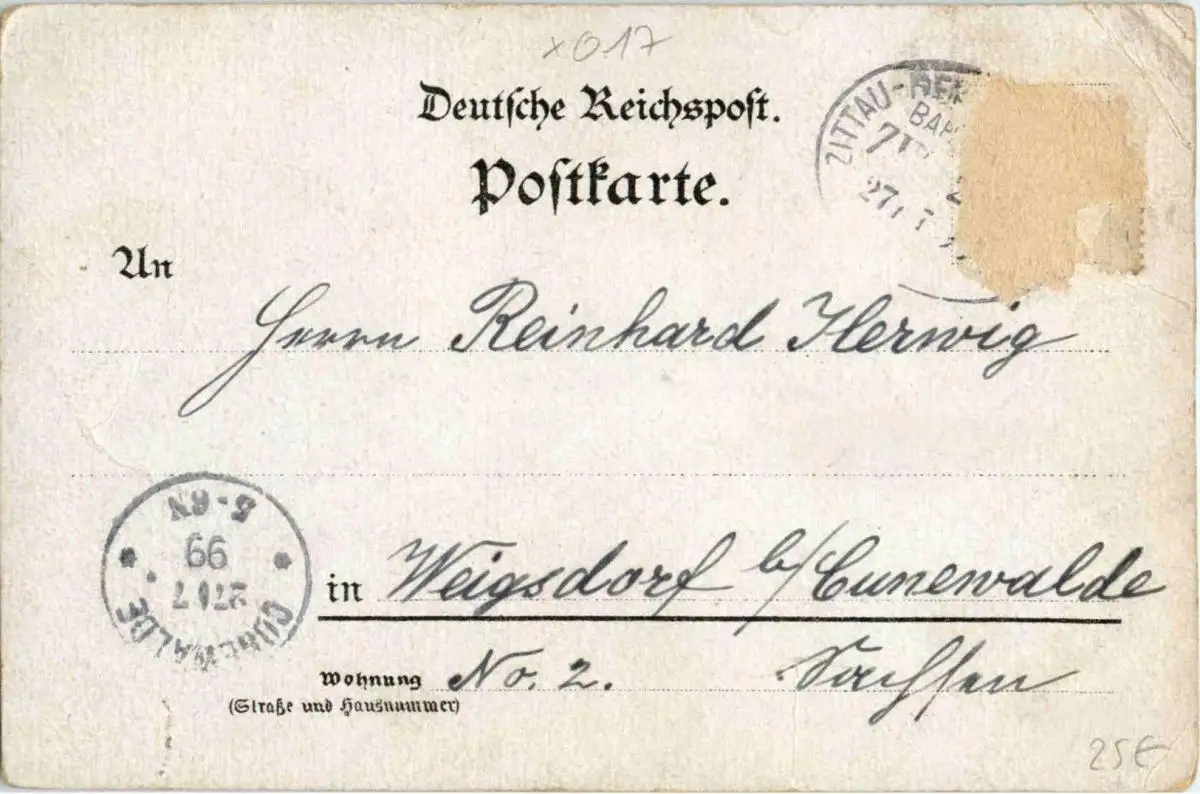 x017
Deutsche Reichspost.
Postkarte.
ZITTAU-
27
An
Herrn Reinhard Herwig
5-6N
99
27 7
CUNEWALDE
in Weigsdorf b/Cunewalde
Wohnung No. 2. Sachsen
(Straße und Hausnummer)
25€